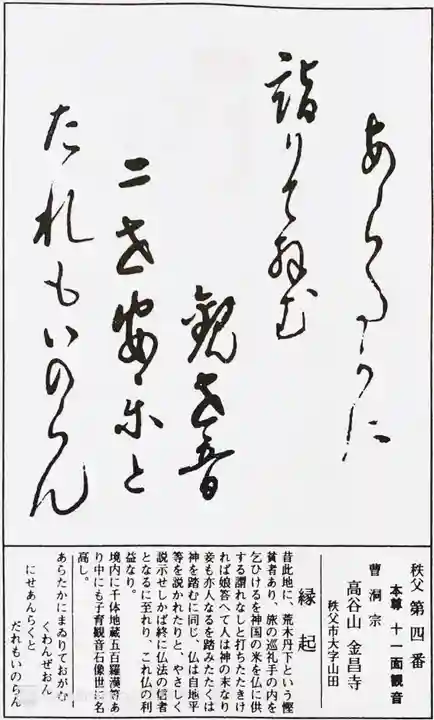 あらたかに
詣りて拝む
観世音
二世安楽と
たれもいのらん
秩父 第四番
本尊 十一面観音
曹洞宗
高谷山 金昌寺
秩父市大字山田
縁起
昔此地に、荒木丹下という慳
貧者あり、旅の巡礼手の内を
乞ひけるを神国の米を仏に供
する謂れなしと打ちたたきけ
れば娘答へて人は神の末なり
妾も亦人なるを踏みたたくは
神を踏むに同じ、仏は自地平
等を説かれたりと、やさしく
説示せしかば終に仏法の信者
となるに至れり、これ仏の利
益なり。
境内に千体地蔵五百羅漢等あ
り中にも子育観音石像世に名
高し。
あらたかにまゐりておがむ
くわんぜおん
にせあんらくと
だれもいのらん